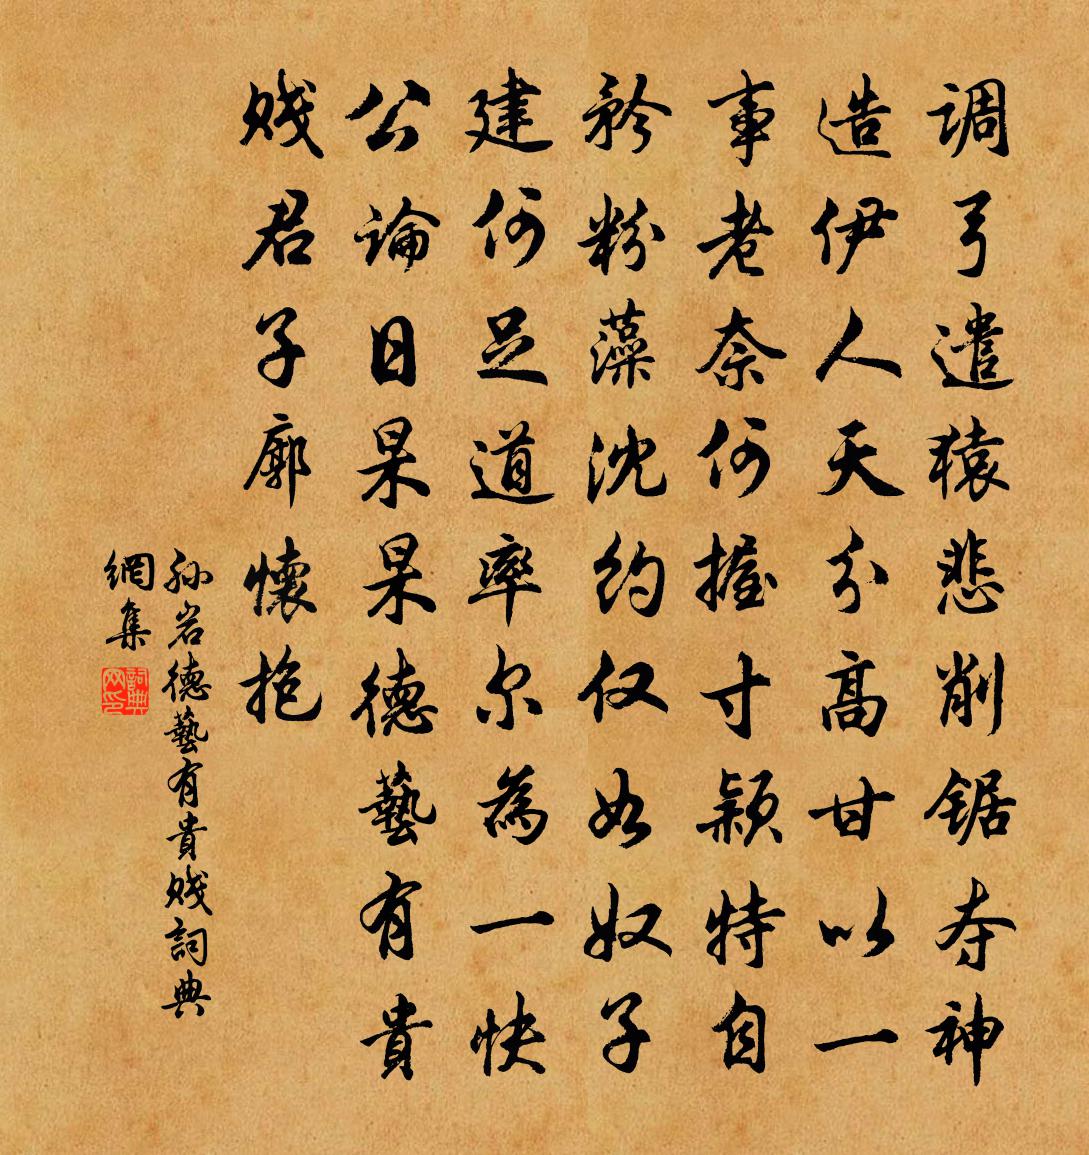 调弓遣猿悲削锯夺神
造伊人天分高甘以一
事老奈何握寸颖特自
矜粉藻沈约仅如奴子
建何足道率尔為一快
公論日杲杲德藝有貴
贱君子廓懷抱
孙岩德藝有貴贱詞典
網集
詞典